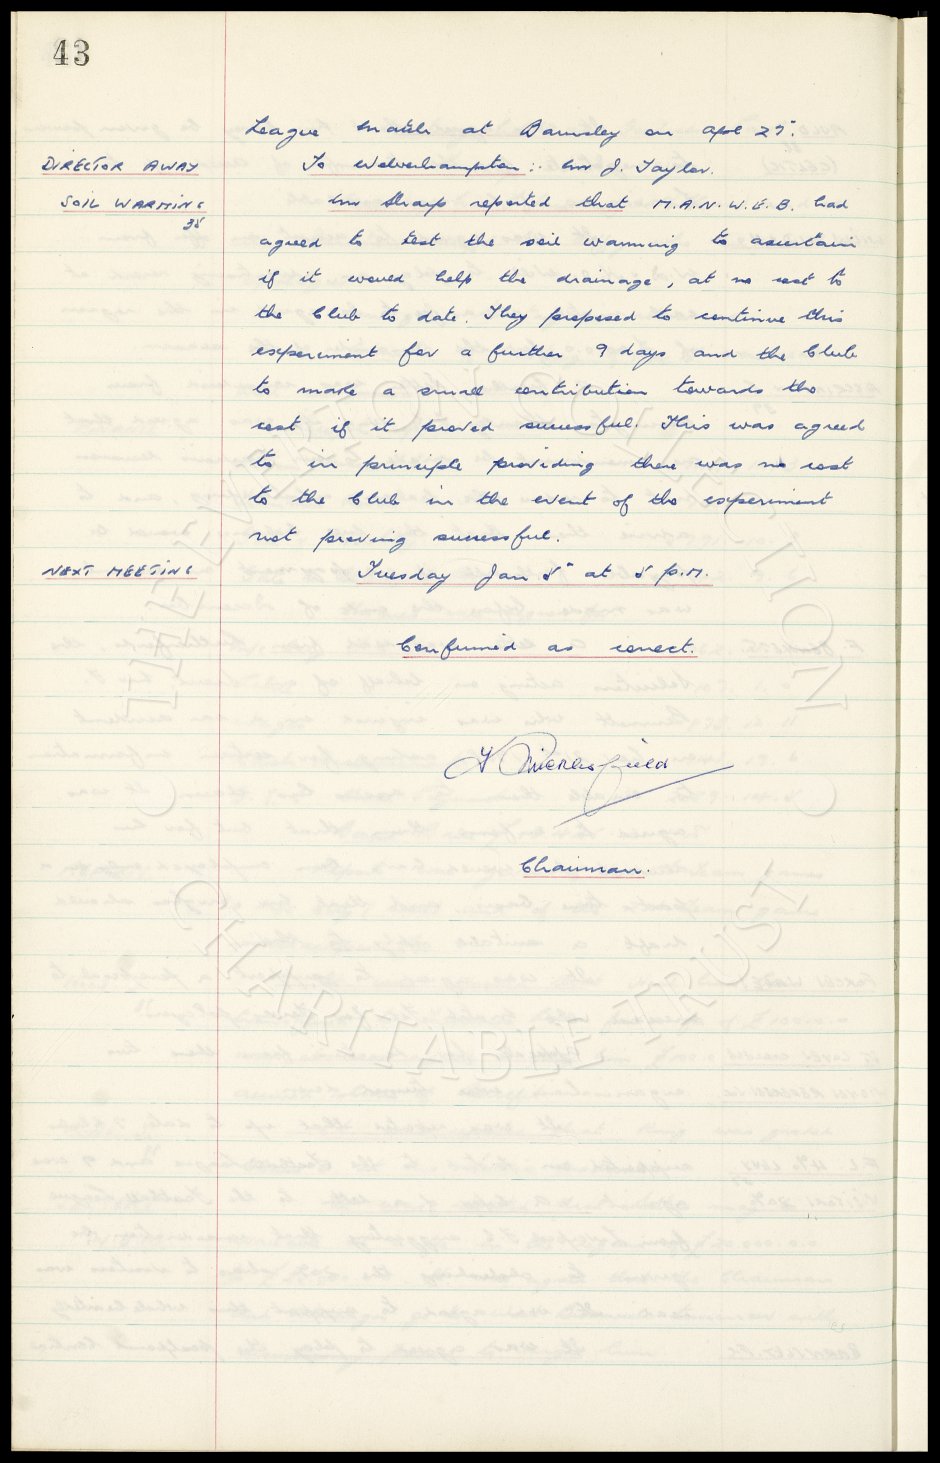 43
League match at Barnsley on Apl 27th.
DIRECTOR AWAY To Wolverhampton :- Mr J. Taylor.
SOIL WARMING Mr Sharp reported that M.A.N.W.E.B. had
38
agreed to test the soil warming to ascertain
if it would help the drainage, at no cost to
the Club to date. They proposed to continue this
experiment for a further 9 days and the Club
to make a small contribution towards the
cost if it proved successful. This was agreed
to in principle providing there was no cost
to the Club in the event of the experiment
not proving successful.
NEXT MEETING Tuesday Jan 8th at 8 p.m.
Confirmed as correct.
Chairman.
EVERTON COLLECTION
CHARITABLE TRUST